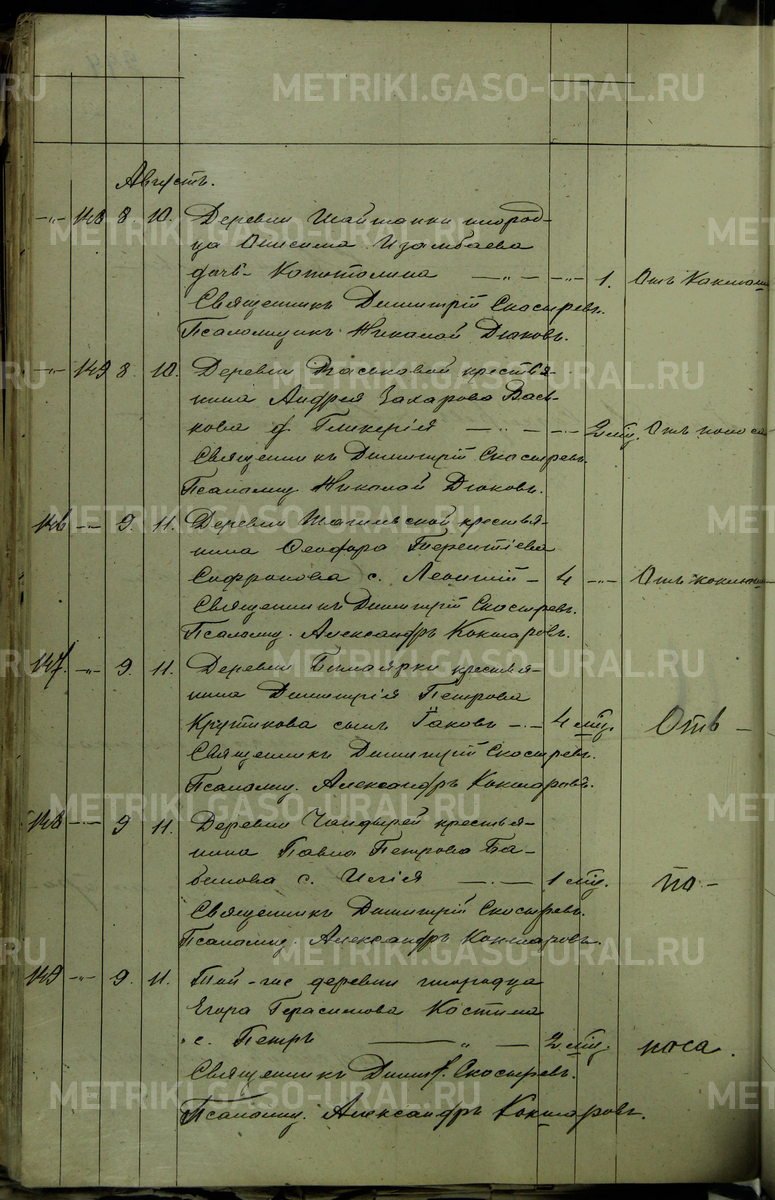 METRIKI.GASO-URAL.RU
Августъ.
-„- 148 8. 10. Деревни Шайтанки инород-
ца Онисима Изамбаева
дочь Капитолина -„- 1. Отъ
Священникъ Димитрій Скосыревъ.
Псаломщикъ Николай Дюковъ.
-„- 149 8 10. Деревни крестья-
нина Андрея Захарова Вась-
кова д. Гликерія -„- 2 мц. Отъ поноса
Священникъ Димитрій Скосыревъ.
Псаломщ. Николай Дюковъ.
146 -„- 9. 11. Деревни крестья-
нина Ѳеодора Терентіева
Сафронова с. Леонтій - 4 -„- Отъ
Священникъ Димитрій Скосыревъ.
Псаломщ. Александръ Кокшаровъ.
147. -„- 9. 11. Деревни крестья-
нина Димитрія Петрова
Крутикова сынъ Іаковъ - 4 мц. Отъ -
Священникъ Димитрій Скосыревъ.
Псаломщ. Александръ Кокшаровъ.
148 -„- 9 11. Деревни крестья-
нина Павла Петрова Ба-
с. Илія - 1 мц. по-
Священникъ Димитрій Скосыревъ.
Псаломщ. Александръ Кокшаровъ.
149 -„- 9. 11. Той-же деревни инородца
Егора Герасимова Костина
с. Петръ „ - 2 мц. носа.
Священникъ Димит. Скосыревъ.
Псаломщ. Александръ Кокшаровъ.